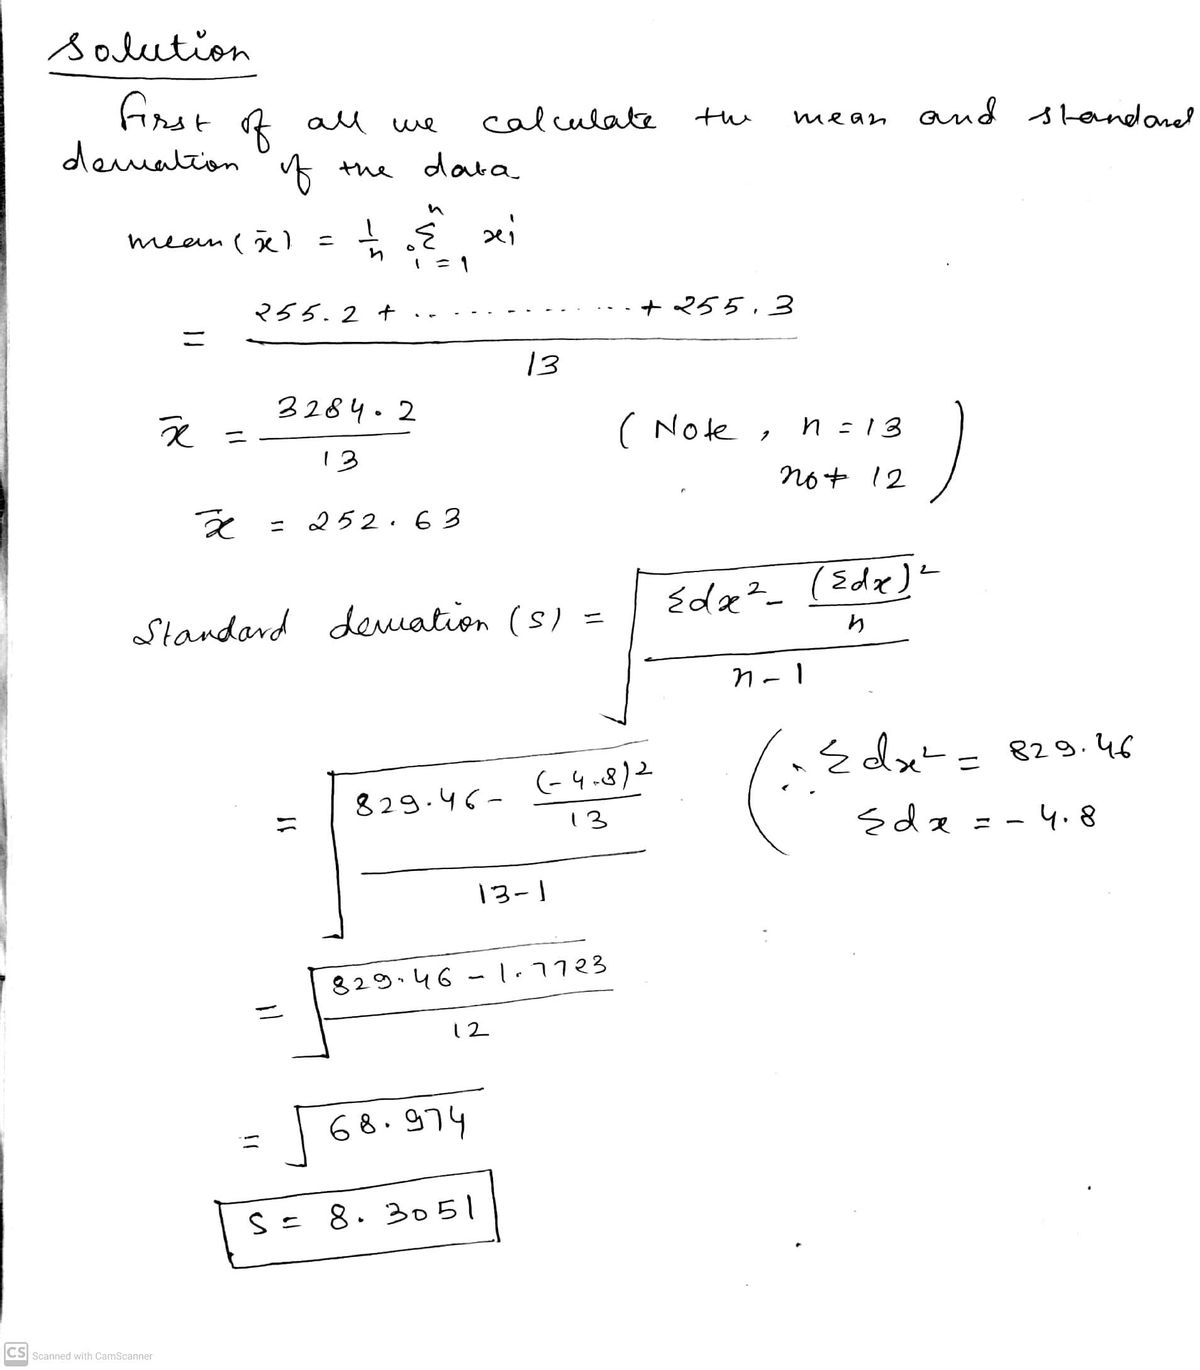 Solution
First of all we calculate the mean and standard
deviation of the data
mean (x̄) = 1/n Σ_{i=1}^{n} xi
= (255.2 + ............... + 255.3) / 13
x̄ = 3284.2 / 13 (Note, n = 13 not 12)
x̄ = 252.63
Standard deviation (s) = √((Σdx² - (Σdx)²/n) / (n-1))
= √((829.46 - (-4.8)²/13) / (13-1)) (∴ Σdx² = 829.46
Σdx = -4.8
= √((829.46 - 1.7723) / 12)
= √68.974
S = 8.3051
CS Scanned with CamScanner